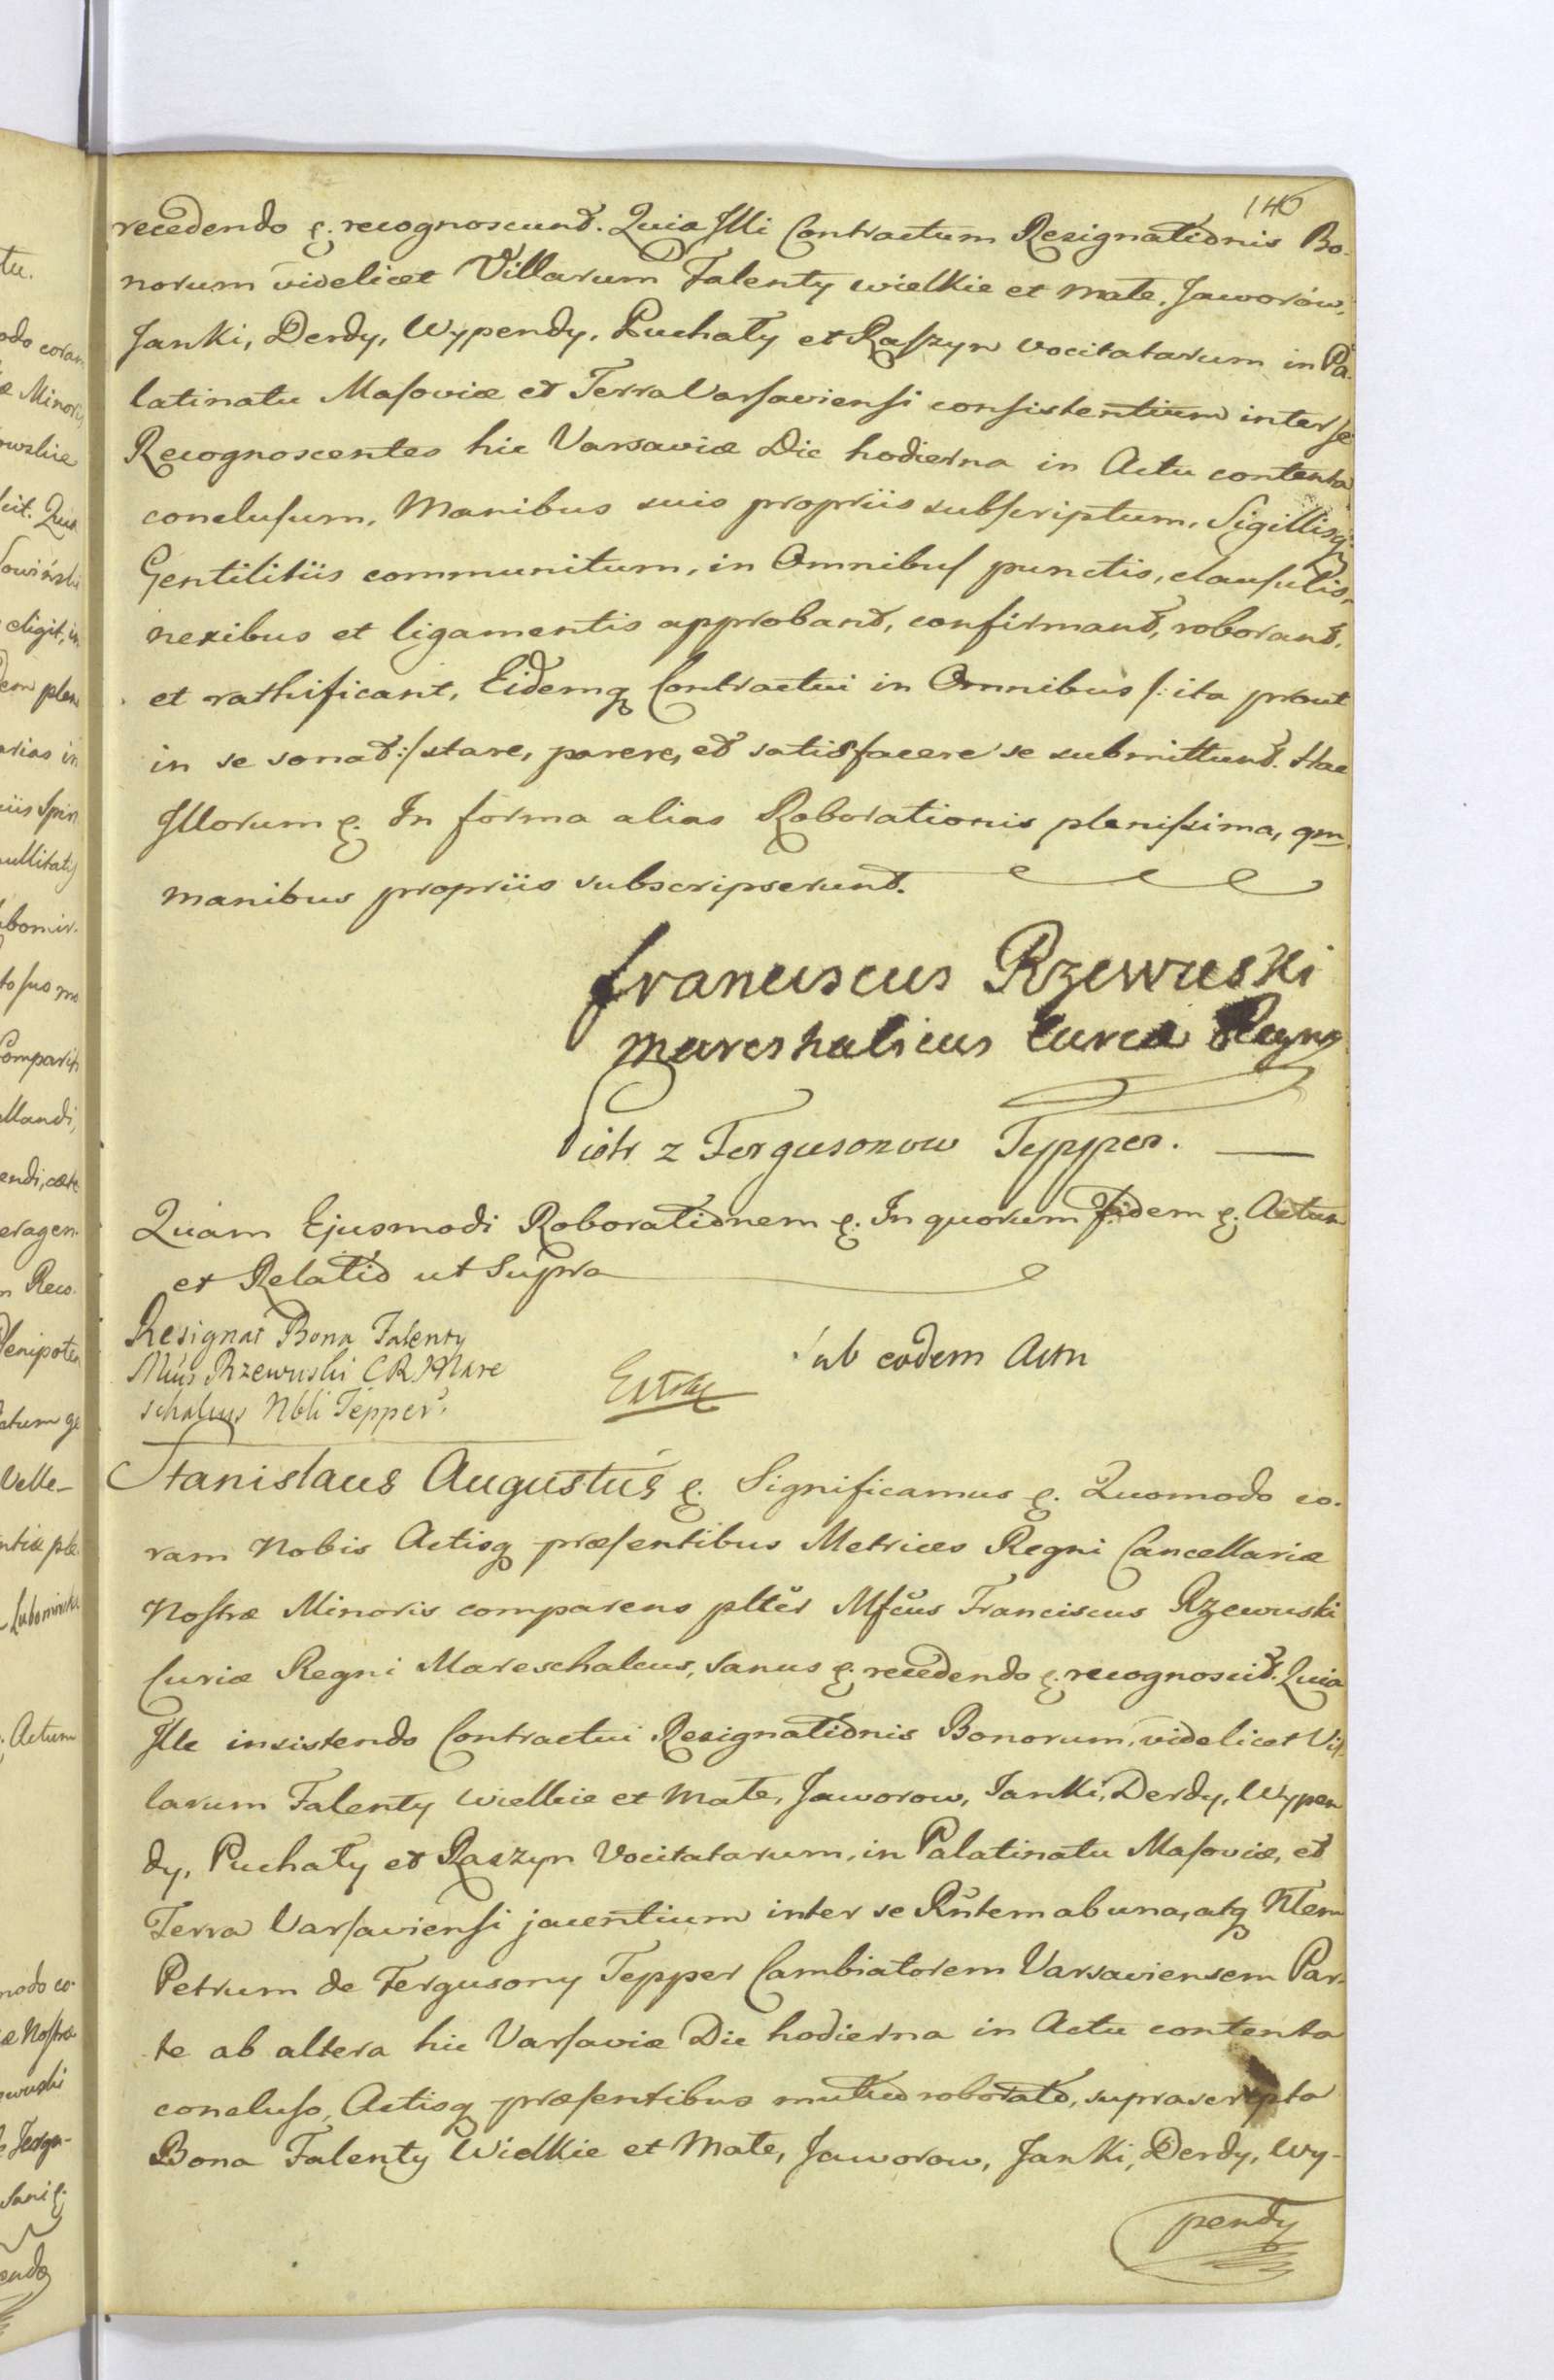 140
recedendo &. recognoscunt. Quia Illi Contractum Resignationis Bo-
norum videlicet Villarum Falenty wielkie et małe, Jaworów,
Janki, Derdy, Wypendy, Puchały et Raſzyn vocitatarum in Pa-
latinatu Maſoviæ et Terra Varſavienſi conſistentium inter ſe
Recognoscentes hic Varsaviæ Die hodierna in Actu contenta
concluſum, Manibus suis propriis subſcriptum, Sigillisq.
Gentilitiis communitum, in Omnibuſ punctis, clauſulis,
nexibus et ligamentis approbant, confirmant, roborant,
et rathificant, Eidemq Contractui in Omnibus /: ita prout
in se sonat :/ stare, parere, et satisfacere se submittunt. Hac
Illorum &. In forma alias Roborationis pleniſsima, qm
manibus propriis subscripserunt.
franciscus Rzewuski
mareshalicus Curea Regny
Piotr z Fergusonow Tepper.
Quam Ejusmodi Roborationem &. In quorum Fidem &. Actum
et Relatio ut Supra
Resignat Bona Falenty
Mfius Rzewuski C R Mare
schalcus Nbli Tepper.
Extr
Sub eodem Actu
Stanislaus Augustus &. Significamus &. Quomodo co-
ram Nobis Actisq præſentibus Metrices Regni Cancellariæ
Noſtræ Minoris comparens plter Mfcus Franciscus Rzewuski
Curiæ Regni Mareschalcus, sanus &. recedendo &. recognoscit. Quia
Ille insistendo Contractui Resignationis Bonorum, videlicet Vil-
larum Falenty wielkie et małe, Jaworow, Janki, Derdy, Wypen
dy, Puchały et Raszyn Vocitatarum, in Palatinatu Maſoviæ, et
Terra Varſavienſi jacentium inter se Rntem ab una, atq Ntem
Petrum de Fergusony Tepper Cambiatorem Varsaviensem Par-
te ab altera hic Varſaviæ Die hodierna in Actu contenta
concluſo, Actisq præſentibus mutuo roborato, suprascripta
Bona Falenty Wielkie et Małe, Jaworow, Janki, Derdy, Wy-
pendy